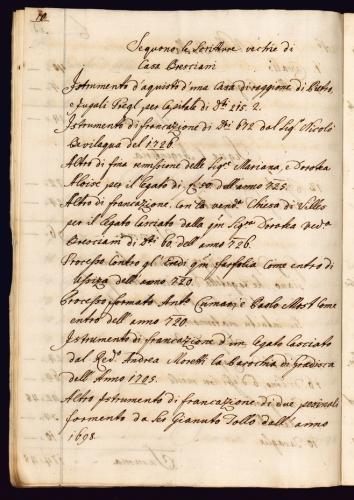 70
Seguono le Scritture vechie di
Casa Bresciani
Istrumento d'aquisto d'una Casa di raggione di Pietro,
e Jugali per Capitale di 215. 2.
Istrumento di francazione di 612 dal Sig.r Nicolò
Bevilaqua del 1726.
Altro di fine remissione delle Sig.e Mariana, e Dorotea
Aloise per il legato di 50 dell'anno 725.
Altro di francazione con la Chiesa di Villes
per il legato lasciato dalla q.m Sig.ra Dorotea ved.a
Bresciani di 60 dell'anno 726.
Processo Contro gl'Eredi q.m come entro di
dell'anno 720.
Processo formato Ant.o e Paolo Come
entro dell'anno 720.
Istrumento di francazione d'un legato lasciato
dal Red.o Andrea Moretti la Parochia di Gradisca
dell'Anno 1705.
Altro Istrumento di francazione di due
formento da Ser Gianuto Tollo dell'anno
1698.